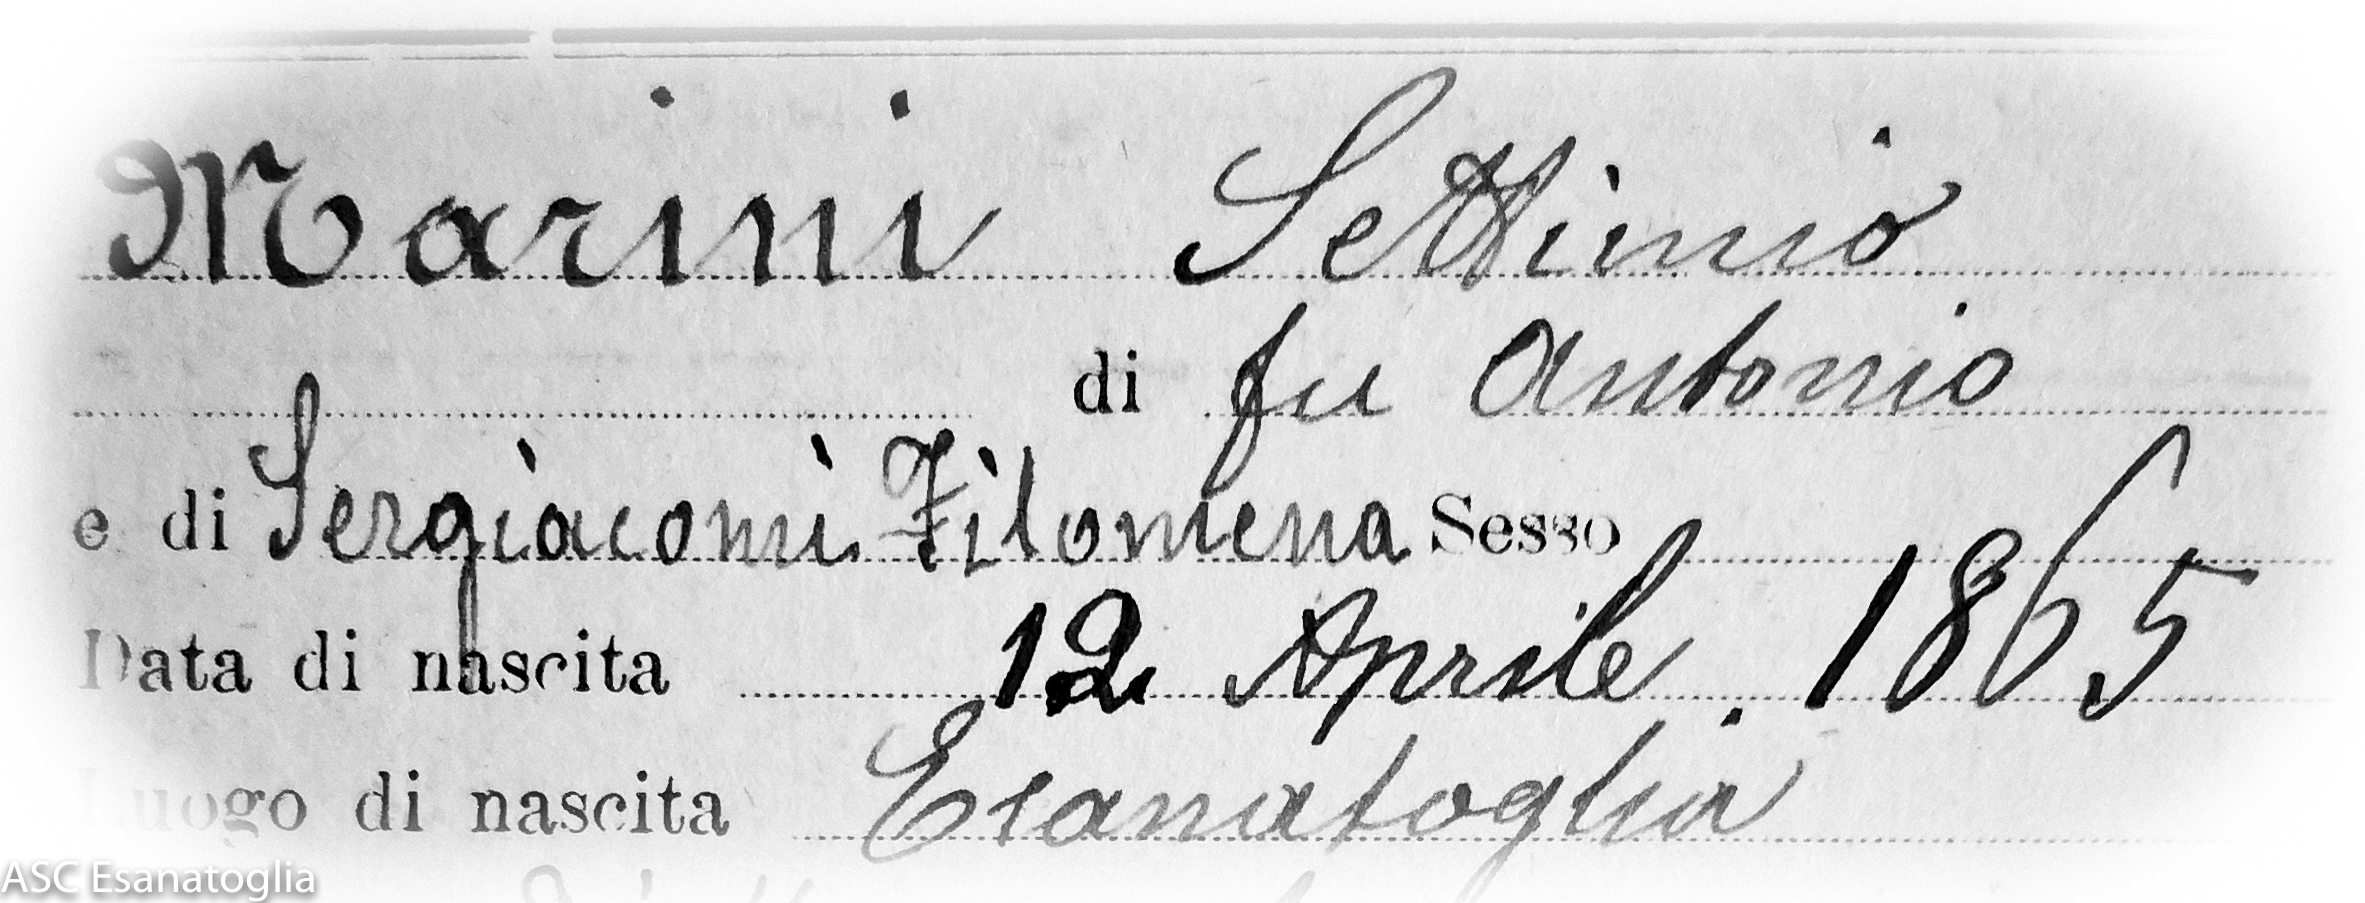 Marini Settimio
di fu Antonio
e di Sergiacomi Filomena Sesso
Data di nascita 12 Aprile. 1865
Luogo di nascita Esanatoglia
ASC Esanatoglia